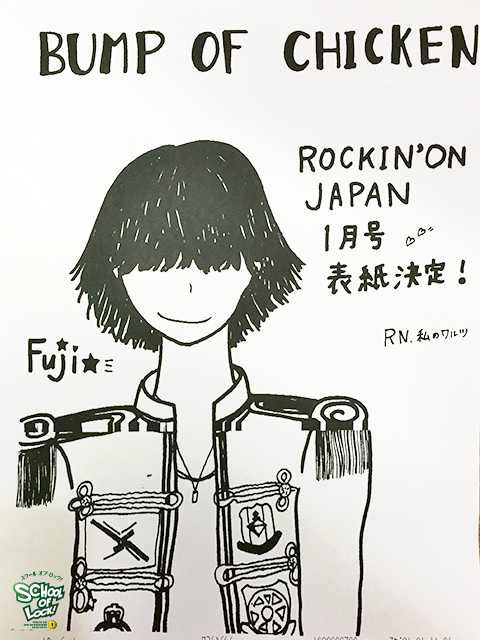 BUMP OF CHICKEN
ROCKIN'ON
JAPAN
1月号
表紙決定!
RN. 私のワルツ
Fuji★
スクール オブ ロック!
SCHOOL
OF
LOCK!